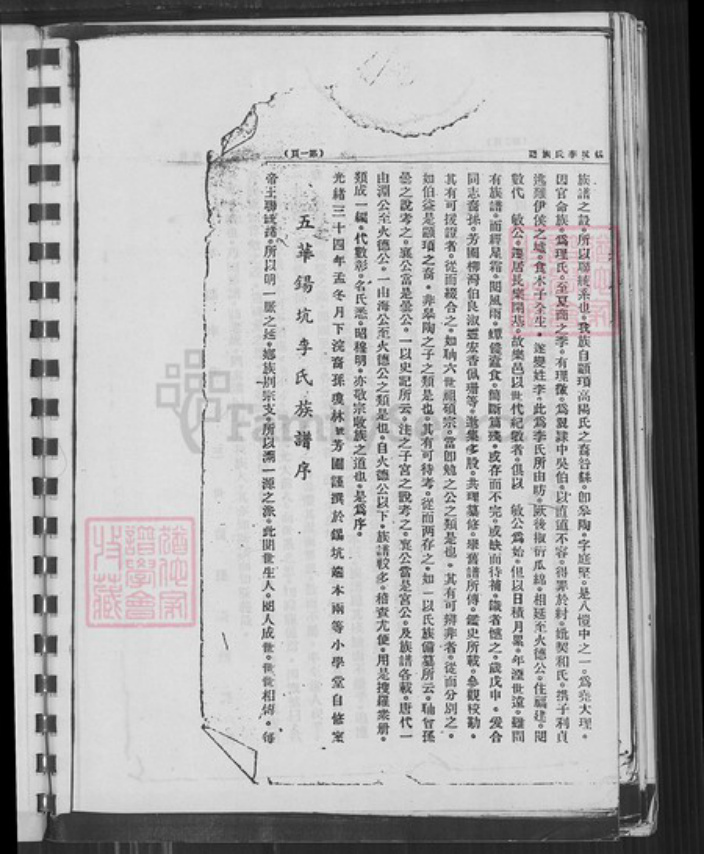 錫坑李氏族譜
（第一頁）
族譜之設。所以聯統系也。我族自顓頊高陽氏之裔咎繇。即皋陶。字庭堅。是八愷中之一。為堯大理。
因官命族。為理氏。至夏商之季。有理徵。為翼隸中吳伯。以直道不容。得罪於紂。娶契和氏。携子利貞
逃難伊侯之墟。食木子全生。遂變姓李。此為李氏所由昉。厥後椒衍瓜綿。相延至火德公。住福建。閱
數代 敏公。遷居長樂開基。故樂邑以世代紀數者。俱以 敏公為始。但以日積月累。年湮世遠。難問
有族譜。而經星霜。閱風雨。蟫侵蠹食。簡斷篇殘。或存而不完。或缺而待補。識者憾之。歲戊申。爰合
同志裔孫。芳園柳灣伯良淑璧宏香佩珊等。邀集多股。共理纂修。舉舊譜所傳。鑑史所載。參觀校勘。
其有可援證者。從而綴合之。如聃六世祖碩宗。當即勉之公之類是也。其有可辨非者。從而分別之。
如伯益是顓頊之裔。非皋陶之子之類是也。其有可待考。從而兩存之。如一以氏族備墓所云。聃曾孫
曇之說考之。襄公當是曇公。一以史記所云。注之子宮之說考之。襄公當是宮公。及族譜各載。唐代一
由淵公至火德公。一由海公至火德公之類是也。自火德公以下。族譜較多。稽查尤便。用是搜羅眾册。
類成一編。代數彰。名氏悉。昭穆明。亦敬宗收族之道也。是為序。
光緒三十四年孟冬月下浣裔孫瓊林號芳園謹撰於錫坑端本兩等小學堂自修室
五華錫坑李氏族譜序
帝王聯統緒。所以明一脈之延。鄉族別宗支。所以溯一源之派。此閱世生人。閱人成世。世世相傳。每
譜學會
收藏